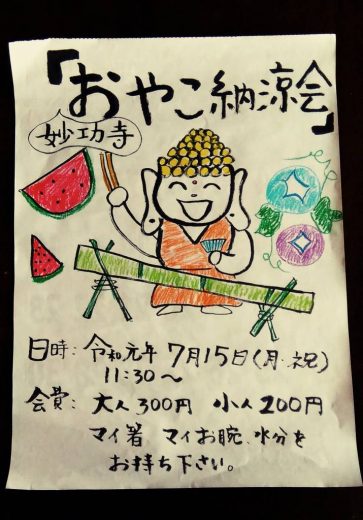 「おやこ納涼会」
妙功寺
日時: 令和元年 7月15日(月・祝)
11:30〜
会費: 大人300円 小人200円
マイ箸 マイお腕、水分を
お持ち下さい。